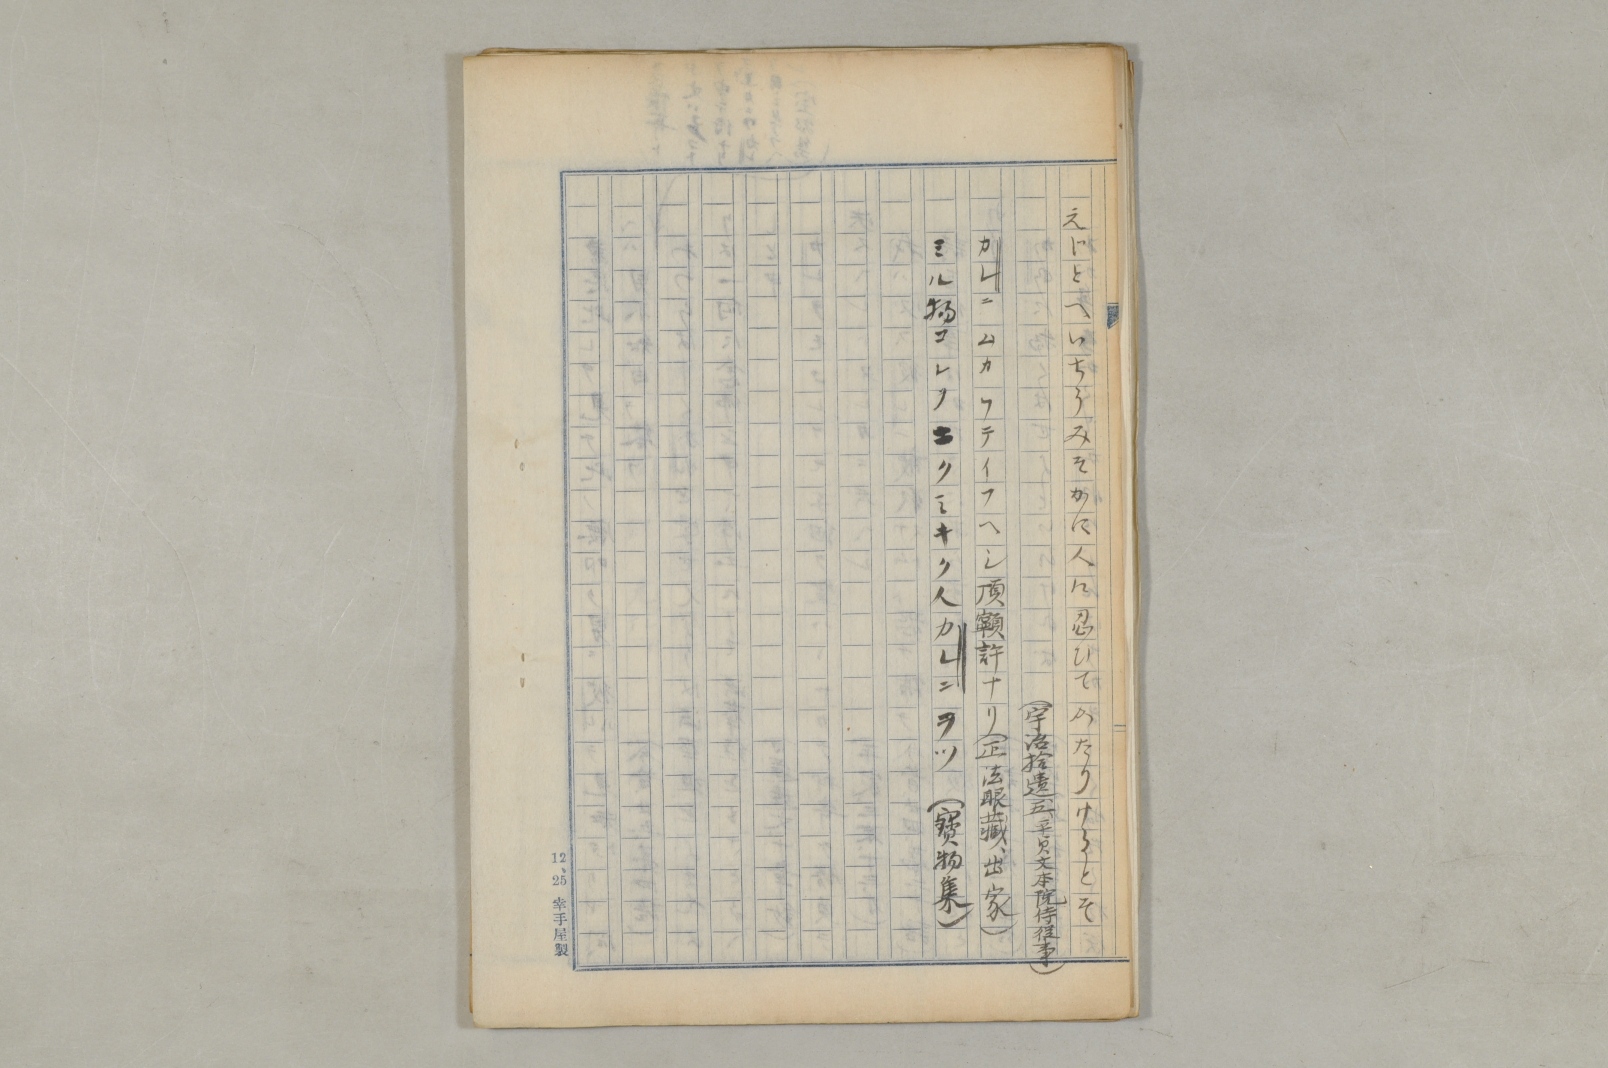 えじとへいちうみそかに人に忍ひてかたりけるとそ
(宇治拾遺五、平貞文本院侍従事)
カレニムカフテイフヘシ頂𩕳許ナリ(正法眼蔵、出家)
ミル物コレヲニクミキク人カレニヲツ (寶物集)
12、25 幸手屋製